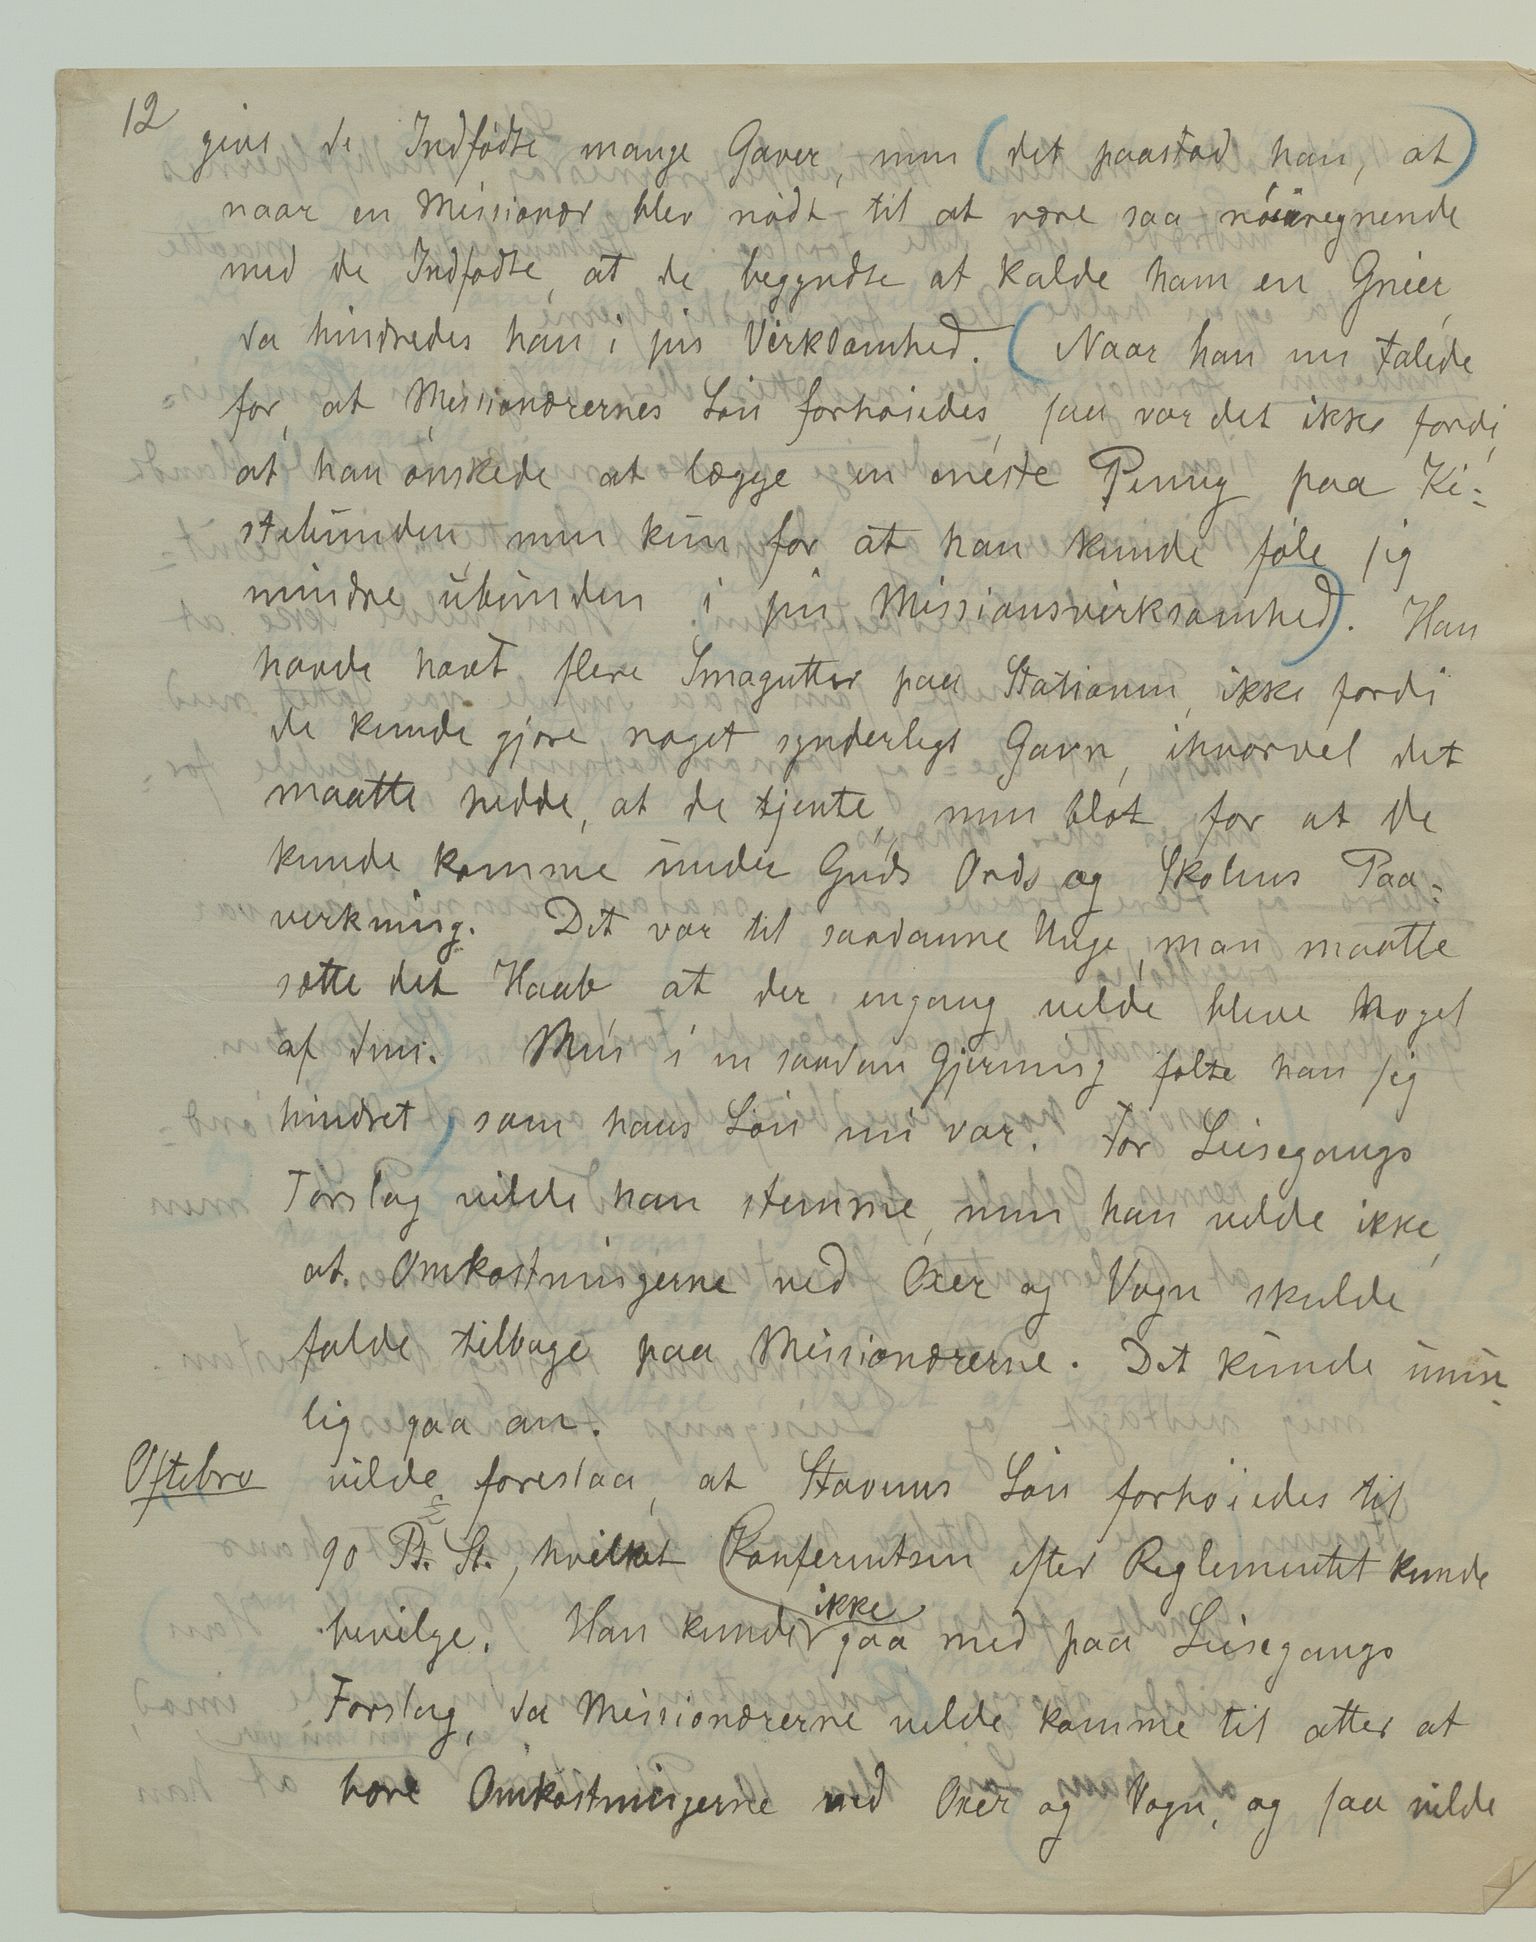 12
give de Indfødte mange Gaver, men (det paastod han, at)
naar en Missionær blev nødt til at være saa nøieregnende
med de Indfødte, at de begyndte at kalde ham en Gnier,
da hindredes han i sin Virksomhed. (Naar han nu talede
for, at Missionærernes Løn forhøiedes, saa var det ikke fordi,
at han ønskede at lægge en eneste Penng paa Ki=
stebunden, men kun for at han kunde føle sig
mindre ubunden i sin Missionsvirksomhed). Han
havde havt flere Smagutter paa Stationen, ikke fordi
de kunde gjøre noget synderligt Gavn, ihvorvel det
maatte hedde, at de tjente, men blot for at de
kunde komme under Guds Ords og Skolens Paa=
virkning. Det var til saadanne Unge, man maatte
sætte det Haab at der engang vilde blive noget
af dem. Men i en saadan Gjerning følte han sig
hindret, som hans Løn nu var. For Leisegangs
Forslag vilde han stemme, men han vilde ikke,
at Omkostningerne ved Oxer og Vogn skulde
falde tilbage paa Missionærerne. Det kunde umu-
lig gaa an.
Oftebro vilde foreslaa, at Stavens Løn forhøiedes til
90 Pd. St., hvilket Konferentsen efter Reglementet kunde
bevilge. Han kunde ikke gaa med paa Leisegangs
Forslag, da Missionærerne vilde komme til atter at
bære Omkostningerne ved Oxer og Vogn, og saa vilde